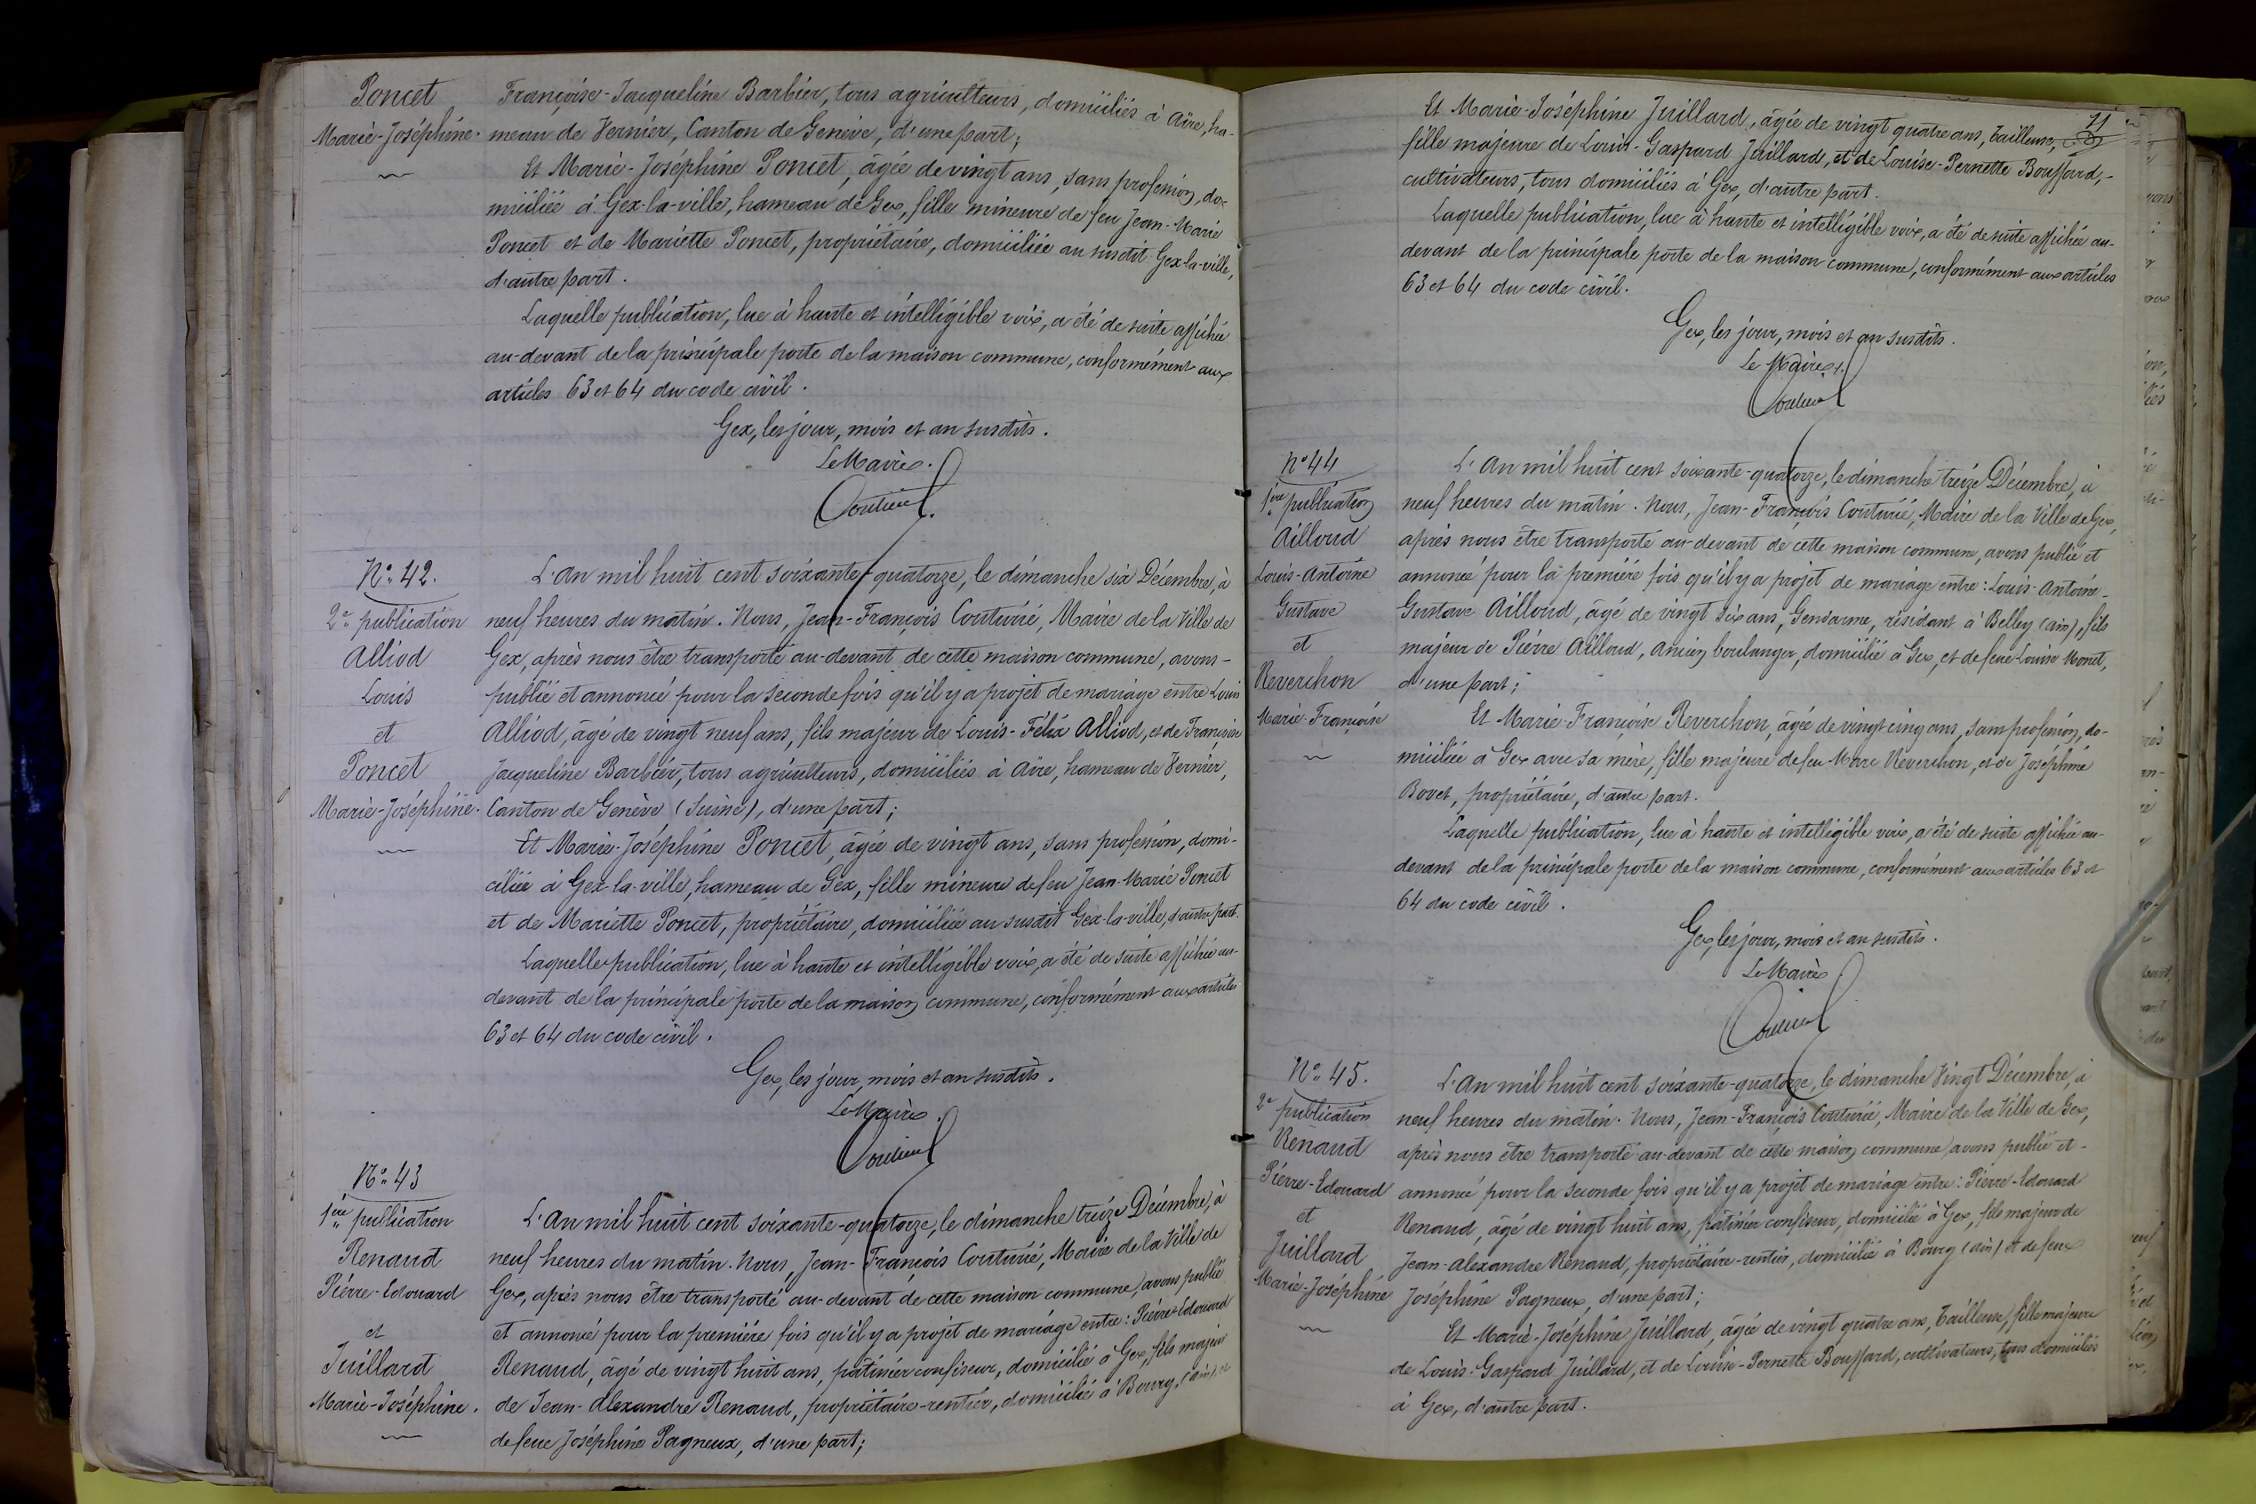 Poncet
Marie-Joséphine.
Françoise-Jacqueline Barbier, tous agriculteurs, domiciliés à Aïre, ha-
meau de Vernier, Canton de Genève, d'une part;
Et Marie-Joséphine Poncet, âgée de vingt ans, sans profession, do-
miciliée à Gex-la-ville, hameau de Gex, fille mineure de feu Jean-Marie
Poncet et de Mariette Poncet, propriétaire, domiciliée au susdit Gex-la-ville,
d'autre part.
Laquelle publication, lue à haute et intelligible voix, a été de suite affichée
au-devant de la principale porte de la maison commune, conformément aux
articles 63 et 64 du code civil.
Gex, les jour, mois et an susdits.
Le Maire.
Couturié
No 42.
2e publication
Alliod
Louis
et
Poncet
Marie-Joséphine.
L'An mil huit cent soixante-quatorze, le dimanche six Décembre, à
neuf heures du matin. Nous, Jean-François Couturié, Maire de la Ville de
Gex, après nous être transporté au-devant de cette maison commune, avons-
publié et annoncé pour la seconde fois qu'il y a projet de mariage entre Louis
Alliod, âgé de vingt neuf ans, fils majeur de Louis-Félix Alliod, et de Françoise
Jacqueline Barbier, tous agriculteurs, domiciliés à Aïre, hameau de Vernier,
Canton de Genève (Suisse), d'une part;
Et Marie-Joséphine Poncet, âgée de vingt ans, sans profession, domi-
ciliée à Gex-la-ville, hameau de Gex, fille mineure de feu Jean-Marie Poncet
et de Mariette Poncet, propriétaire, domiciliée au susdit Gex-la-ville, d'autre part.
Laquelle publication, lue à haute et intelligible voix, a été de suite affichée au-
devant de la principale porte de la maison commune, conformément aux articles
63 et 64 du code civil.
Gex, les jour, mois et an susdits.
Le Maire.
Couturié
No 43
1ère publication
Renaud
Pierre-Edouard
et
Juillard
Marie-Joséphine.
L'An mil huit cent soixante-quatorze, le dimanche treize Décembre, à
neuf heures du matin. Nous, Jean-François Couturié, Maire de la Ville de
Gex, après nous être transporté au-devant de cette maison commune, avons publié
et annoncé pour la première fois qu'il y a projet de mariage entre: Pierre-Edouard
Renaud, âgé de vingt huit ans, pâtissier confiseur, domicilié à Gex, fils majeur
de Jean-Alexandre Renaud, propriétaire-rentier, domicilié à Bourg, (ain), et
de feue Joséphine Pagneux, d'une part;
71
Et Marie-Joséphine Juillard, âgée de vingt quatre ans, tailleuse,
fille majeure de Louis-Gaspard Juillard, et de Louise-Pernette Bouffard,-
cultivateurs, tous domiciliés à Gex, d'autre part.
Laquelle publication, lue à haute et intelligible voix, a été de suite affichée au-
devant de la principale porte de la maison commune, conformément aux articles
63 et 64 du code civil.
Gex, les jour, mois et an susdits.
Le Maire.
Couturié
No 44
1ère publication
Ailloud
Louis-Antoine
Gustave
et
Reverchon
Marie-Françoise
L'An mil huit cent soixante-quatorze, le dimanche treize Décembre, à
neuf heures du matin. Nous, Jean-François Couturié, Maire de la Ville de Gex,
après nous être transporté au-devant de cette maison commune, avons publié et
annoncé pour la première fois qu'il y a projet de mariage entre: Louis-Antoine-
Gustave Ailloud, âgé de vingt six ans, Gendarme, résidant à Belley (ain), fils
majeur de Pierre Ailloud, ancien boulanger, domicilié à Gex, et de feue Louise Monet,
d'une part;
Et Marie-Françoise Reverchon, âgée de vingt-cinq ans, sans profession, do-
miciliée à Gex avec sa mère, fille majeure de feu Marc Reverchon, et de Joséphine
Bovet, propriétaire, d'autre part.
Laquelle publication, lue à haute et intelligible voix, a été de suite affichée au-
devant de la principale porte de la maison commune, conformément aux articles 63 et
64 du code civil.
Gex, les jour, mois et an susdits.
Le Maire
Couturié
No 45.
2e publication
Renaud
Pierre-Edouard
et
Juillard
Marie-Joséphine
L'An mil huit cent soixante-quatorze, le dimanche Vingt Décembre, à
neuf heures du matin. Nous, Jean-François Couturié, Maire de la Ville de Gex,
après nous être transporté au-devant de cette maison commune avons publié et-
annoncé pour la seconde fois qu'il y a projet de mariage entre: Pierre-Edouard
Renaud, âgé de vingt huit ans, pâtissier confiseur, domicilié à Gex, fils majeur de
Jean-Alexandre Renaud, propriétaire-rentier, domicilié à Bourg (ain) et de feue
Joséphine Pagneux, d'une part;
Et Marie-Joséphine Juillard, âgée de vingt quatre ans, tailleuse, fille majeure
de Louis-Gaspard Juillard, et de Louise-Pernette Bouffard, cultivateurs, tous domiciliés
à Gex, d'autre part.